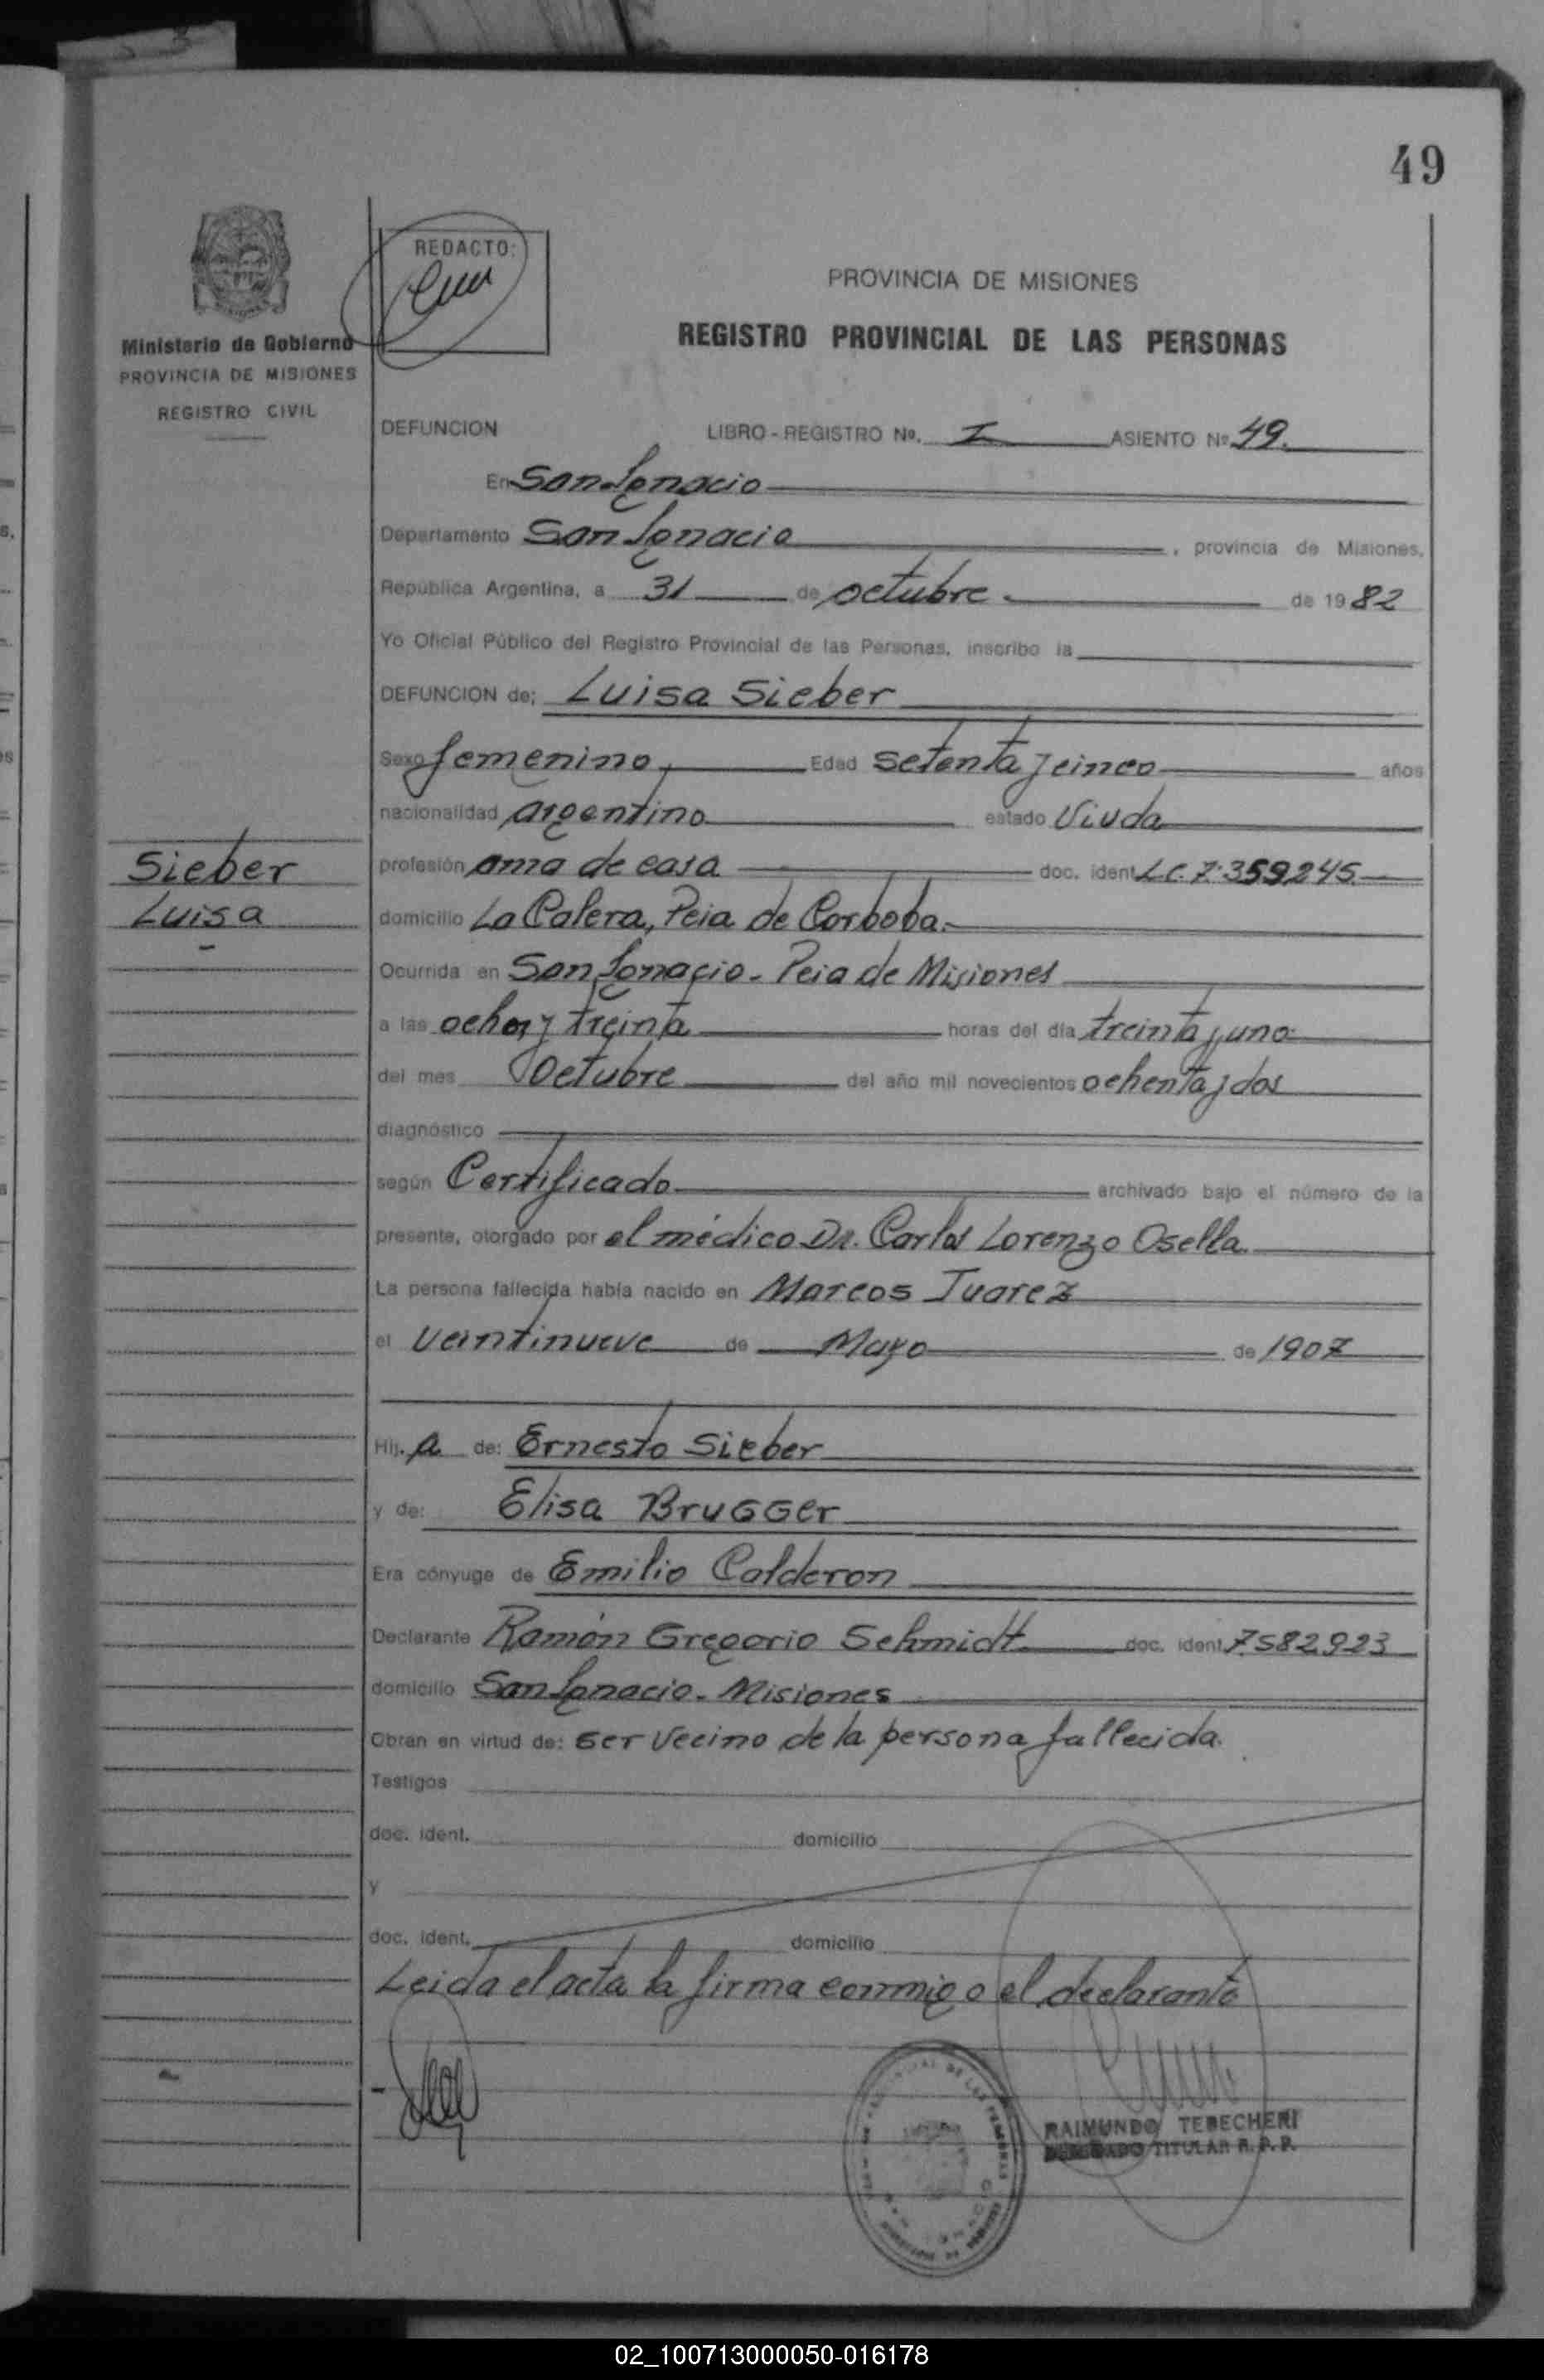 49
REDACTO:
PROVINCIA DE MISIONES
Ministerio de Gobierno
PROVINCIA DE MISIONES
REGISTRO CIVIL
REGISTRO PROVINCIAL DE LAS PERSONAS
DEFUNCION LIBRO - REGISTRO Nº. I ASIENTO Nº 49.
En San Ignacio
Departamento San Ignacio, provincia de Misiones,
República Argentina, a 31 de octubre. de 1982
Yo Oficial Público del Registro Provincial de las Personas, inscribo la
DEFUNCION de; Luisa Sieber
Sexo femenino, Edad setenta y cinco años
nacionalidad argentino estado Viuda
Sieber
Luisa
profesión ama de casa doc. ident. L.C. 7.359245.
domicilio La Calera, Pcia de Cordoba.
Ocurrida en San Ignacio - Pcia de Misiones
a las ocho y treinta horas del día treinta y uno
del mes Octubre del año mil novecientos ochenta y dos
diagnóstico
según Certificado archivado bajo el número de la
presente, otorgado por el médico Dr. Carlos Lorenzo Osella.
La persona fallecida había nacido en Marcos Juarez
el veintinueve de Mayo de 1907
Hij. a de: Ernesto Sieber
y de: Elisa BruGGer
Era cónyuge de Emilio Calderon
Declarante Ramón Gregorio Schmidt doc. ident. 7.582.923
domicilio San Ignacio. Misiones
Obran en virtud de: ser vecino de la persona fallecida.
Testigos
doc. ident. domicilio
y
doc. ident. domicilio
Leida el acta la firma conmigo el declarante
RAIMUNDO TEBECHERI
DELEGADO TITULAR R. P. P.
02_100713000050-016178